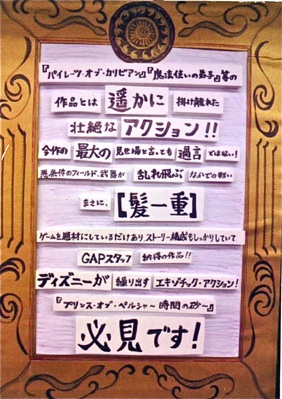 『パイレーツ・オブ・カリビアン』『魔法使いの弟子』等の
作品とは 遥かに 掛け離れた
壮絶な アクション!!
今作の 最大の 見せ場と言っても 過言 では無い!
悪条件のフィールド、武器が 乱れ飛ぶ なかでの戦い
まさに、【髪一重】
ゲームを題材にしているだけあり ストーリー構成もしっかりしていて
GAPスタッフ 納得の作品!!
ディズニーが 繰り出す エキゾチック・アクション!
『プリンス・オブ・ペルシャ～時間の砂～』
必見です!